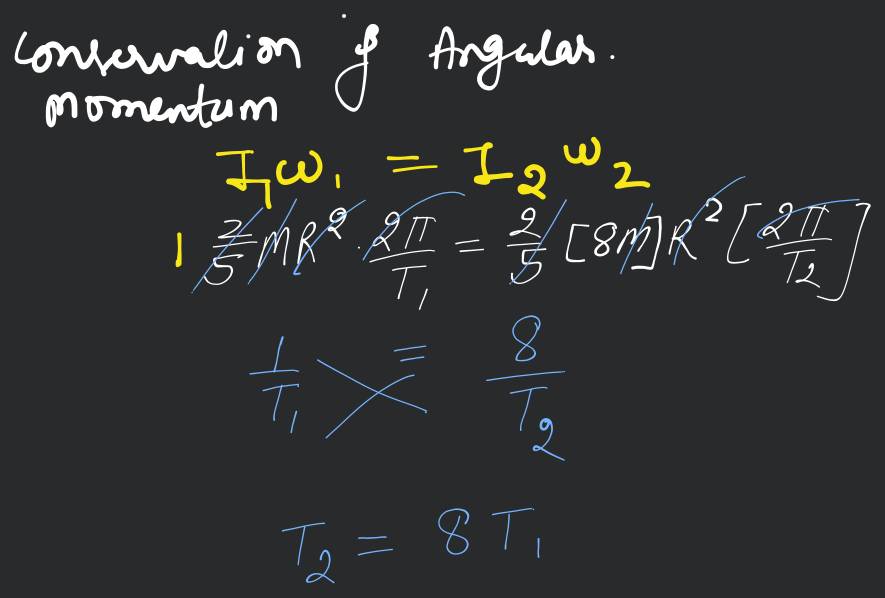 Conservation of Angular.
momentum
I₁ω₁ = I₂ω₂
1 2/5 MR² · 2π/T₁ = 2/5 [8M]R² [2π/T₂]
1/T₁ = 8/T₂
T₂ = 8T₁